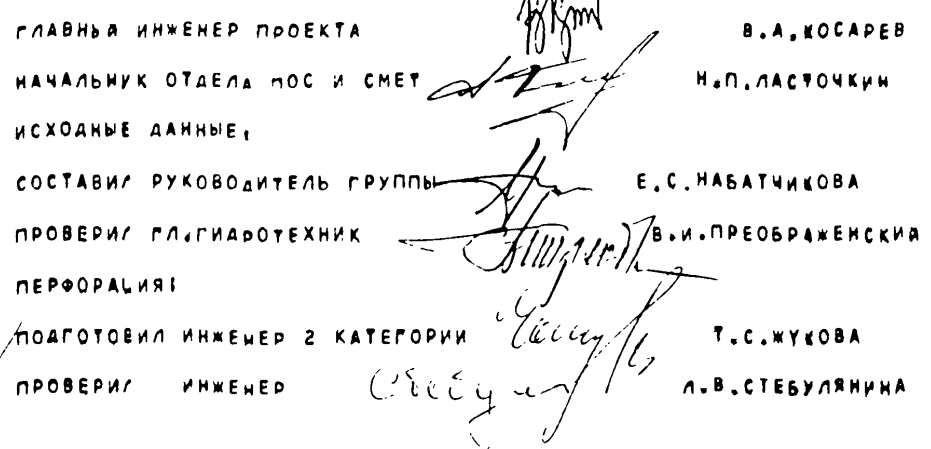 ГЛАВНЫЙ ИНЖЕНЕР ПРОЕКТА В.А.КОСАРЕВ
НАЧАЛЬНИК ОТДЕЛА ПОС И СМЕТ Н.П.ЛАСТОЧКИН
ИСХОДНЫЕ ДАННЫЕ:
СОСТАВИЛ РУКОВОДИТЕЛЬ ГРУППЫ Е.С.НАБАТЧИКОВА
ПРОВЕРИЛ ГЛ.ГИДРОТЕХНИК В.И.ПРЕОБРАЖЕНСКИЙ
ПЕРФОРАЦИЯ:
ПОДГОТОВИЛ ИНЖЕНЕР 2 КАТЕГОРИИ Т.С.ЖУКОВА
ПРОВЕРИЛ ИНЖЕНЕР Л.В.СТЕБУЛЯНИНА